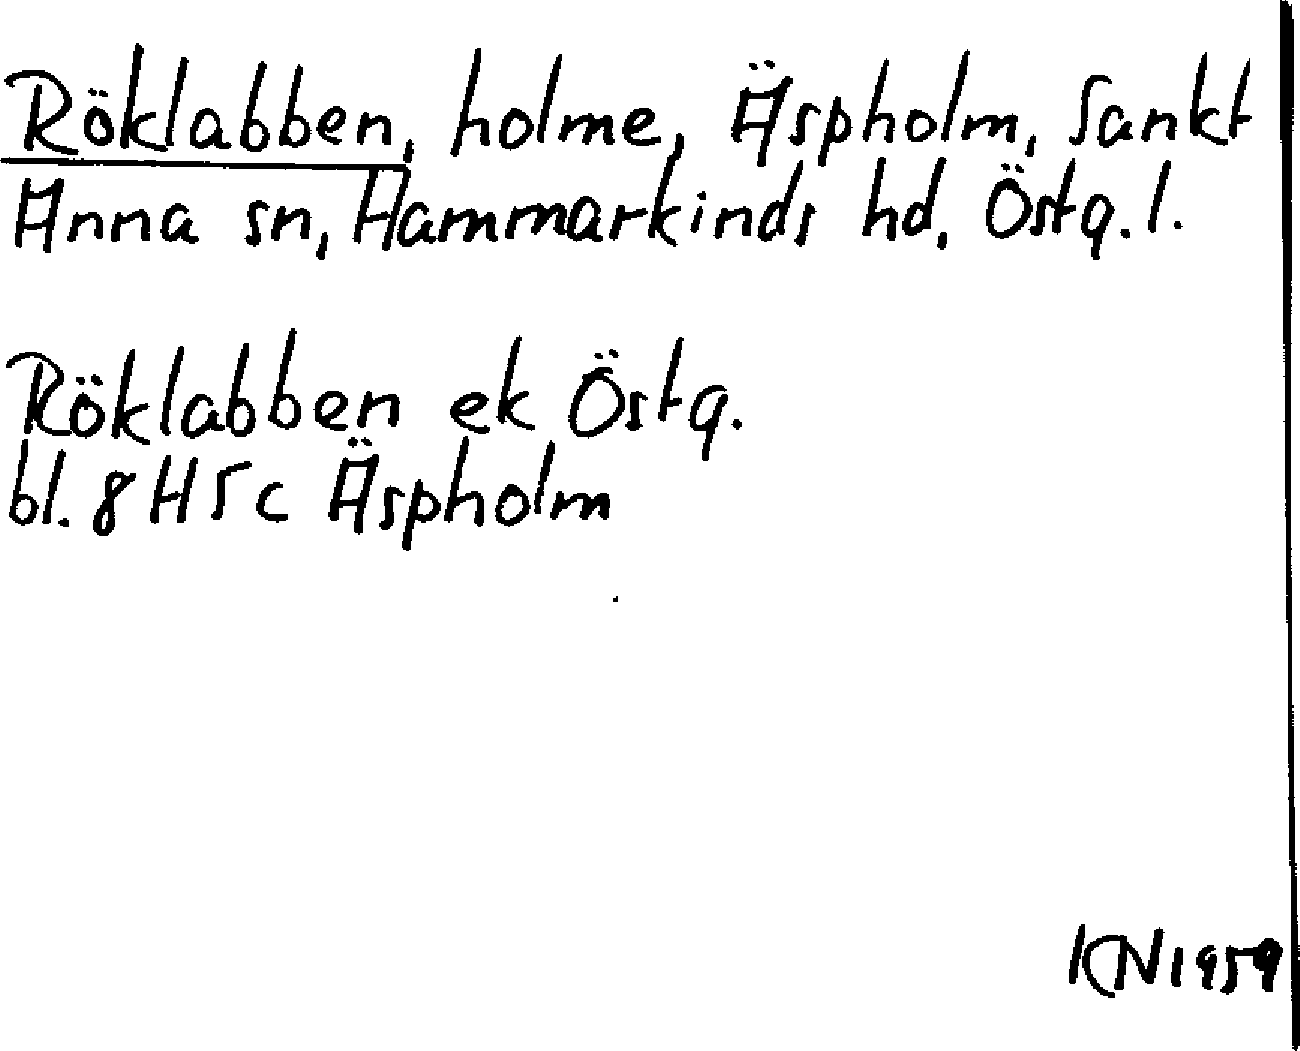 Röklabben, holme, Äspholm, Sankt
Anna sn, Hammarkinds hd, Östg. l.
Röklabben ek Östg.
bl. 8H5c Äspholm
KN1959